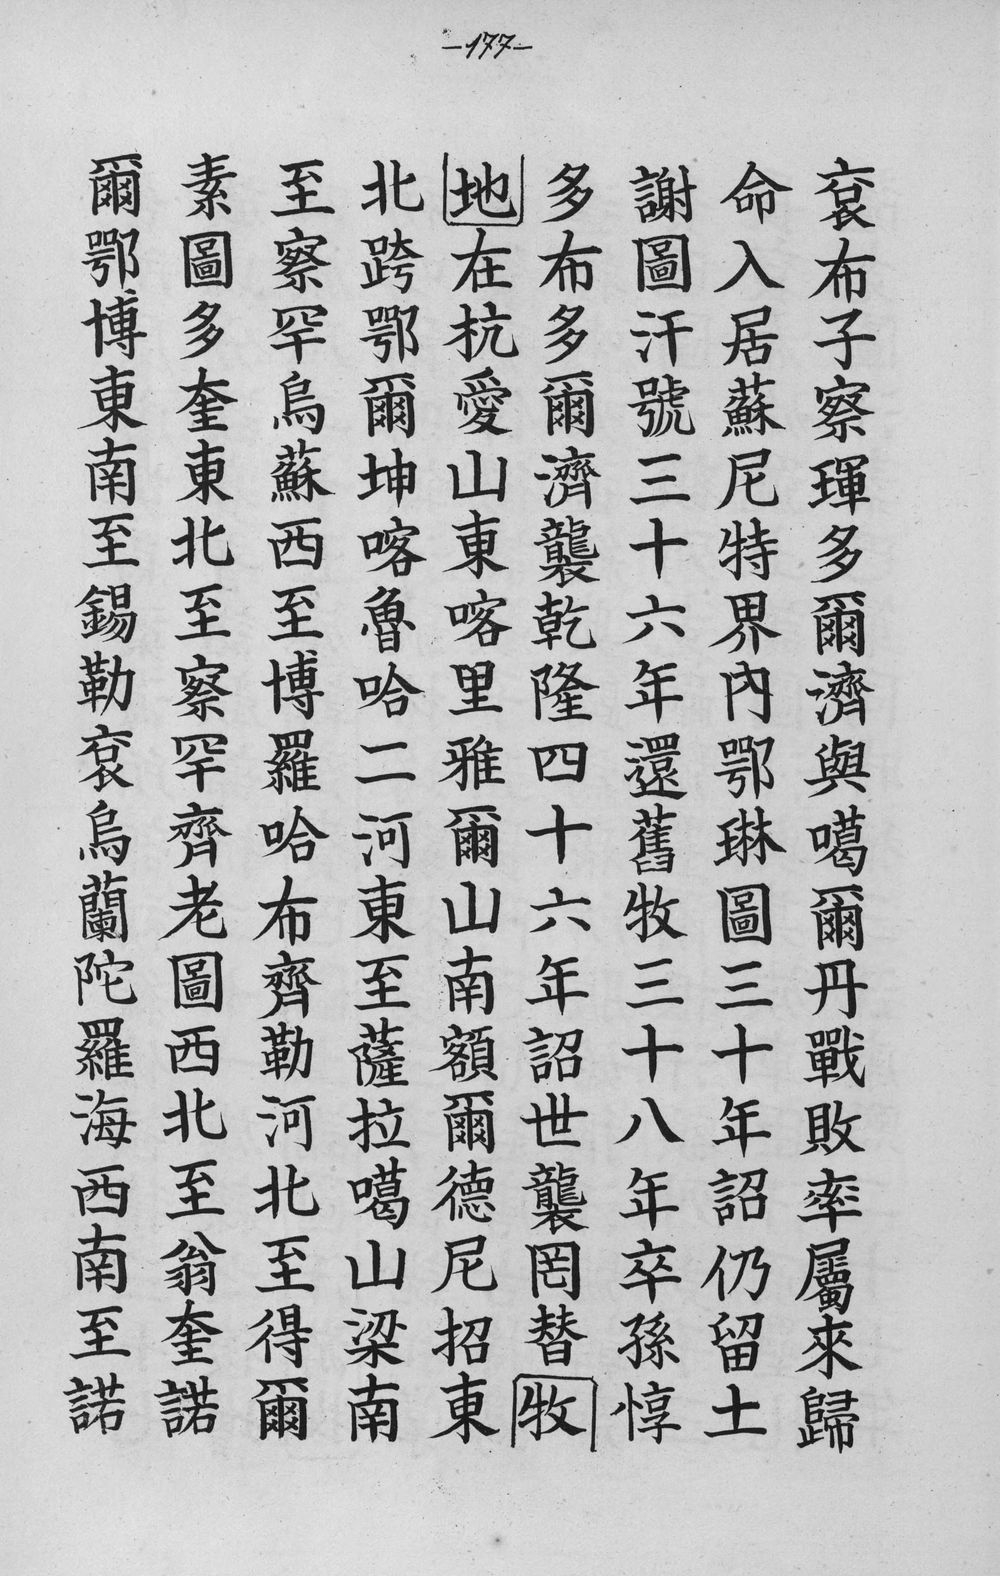 -177-
袞布子察琿多爾濟與噶爾丹戰敗率屬來歸
命入居蘇尼特界內鄂琳圖三十年詔仍留土
謝圖汗號三十六年還舊牧三十八年卒孫惇
多布多爾濟襲乾隆四十六年詔世襲罔替牧
地在杭愛山東喀里雅爾山南額爾德尼招東
北跨鄂爾坤喀魯哈二河東至薩拉噶山梁南
至察罕烏蘇西至博羅哈布齊勒河北至得爾
素圖多奎東北至察罕齊老圖西北至翁奎諾
爾鄂博東南至錫勒袞烏蘭陀羅海西南至諾